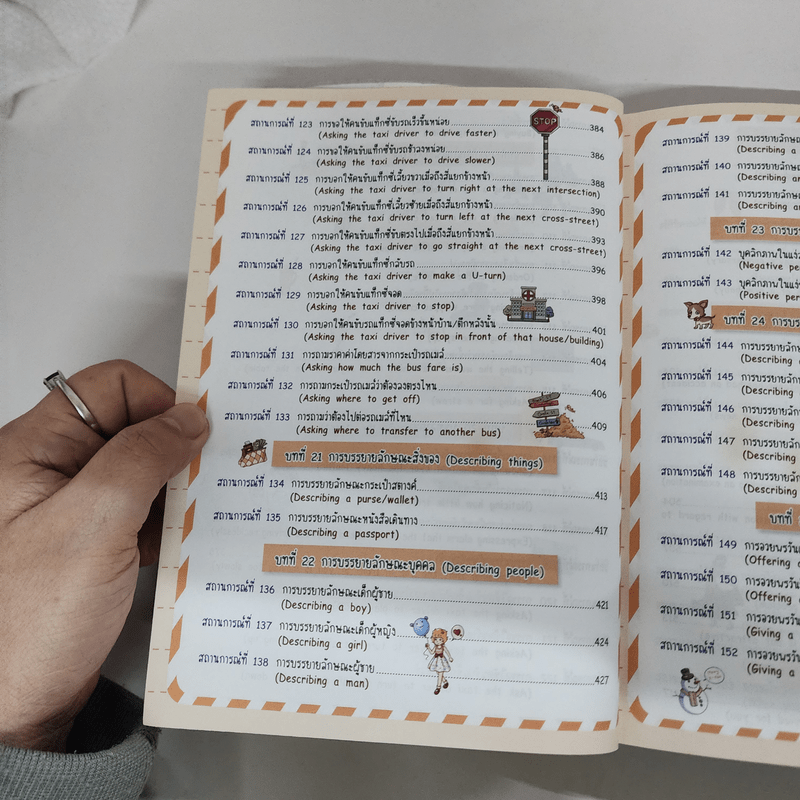 สถานการณ์ที่ 123 การขอให้คนขับแท็กซี่ขับรถเร็วขึ้นหน่อย 384
(Asking the taxi driver to drive faster)
STOP
สถานการณ์ที่ 124 การขอให้คนขับแท็กซี่ขับรถช้าลงหน่อย 386
(Asking the taxi driver to drive slower)
สถานการณ์ที่ 125 การบอกให้คนขับแท็กซี่เลี้ยวขวาเมื่อถึงสี่แยกข้างหน้า 388
(Asking the taxi driver to turn right at the next intersection)
สถานการณ์ที่ 126 การบอกให้คนขับแท็กซี่เลี้ยวซ้ายเมื่อถึงสี่แยกข้างหน้า 390
(Asking the taxi driver to turn left at the next cross-street)
สถานการณ์ที่ 127 การบอกให้คนขับแท็กซี่ขับตรงไปเมื่อถึงสี่แยกข้างหน้า 393
(Asking the taxi driver to go straight at the next cross-street)
สถานการณ์ที่ 128 การบอกให้คนขับแท็กซี่กลับรถ 396
(Asking the taxi driver to make a U-turn)
สถานการณ์ที่ 129 การบอกให้คนขับแท็กซี่จอด 398
(Asking the taxi driver to stop)
สถานการณ์ที่ 130 การบอกให้คนขับรถแท็กซี่จอดข้างหน้าบ้าน/ตึกหลังนั้น 401
(Asking the taxi driver to stop in front of that house/building)
สถานการณ์ที่ 131 การถามราคาค่าโดยสารจากกระเป๋ารถเมล์ 404
(Asking how much the bus fare is)
สถานการณ์ที่ 132 การถามกระเป๋ารถเมล์ว่าต้องลงตรงไหน 406
(Asking where to get off)
สถานการณ์ที่ 133 การถามว่าต้องไปต่อรถเมล์ที่ไหน 409
(Asking where to transfer to another bus)
บทที่ 21 การบรรยายลักษณะสิ่งของ (Describing things)
สถานการณ์ที่ 134 การบรรยายลักษณะกระเป๋าสตางค์ 413
(Describing a purse/wallet)
สถานการณ์ที่ 135 การบรรยายลักษณะหนังสือเดินทาง 417
(Describing a passport)
บทที่ 22 การบรรยายลักษณะบุคคล (Describing people)
สถานการณ์ที่ 136 การบรรยายลักษณะเด็กผู้ชาย 421
(Describing a boy)
สถานการณ์ที่ 137 การบรรยายลักษณะเด็กผู้หญิง 424
(Describing a girl)
สถานการณ์ที่ 138 การบรรยายลักษณะผู้ชาย 427
(Describing a man)
สถานการณ์ที่ 139 การบรรยายลักษ
(Describing a
สถานการณ์ที่ 140 การบรรยายลักษ
(Describing an
สถานการณ์ที่ 141 การบรรยายลักษ
(Describing an
บทที่ 23 การบรร
สถานการณ์ที่ 142 บุคลิกภาพในแง่
(Negative per
สถานการณ์ที่ 143 บุคลิกภาพในแง่
(Positive per
บทที่ 24 การบร
สถานการณ์ที่ 144 การบรรยายลัก
(Describing
สถานการณ์ที่ 145 การบรรยายลัก
(Describing
สถานการณ์ที่ 146 การบรรยายลัก
(Describing
สถานการณ์ที่ 147 การบรรยายลัก
(Describing
สถานการณ์ที่ 148 การบรรยายลัก
(Describing
บทที่
สถานการณ์ที่ 149 การอวยพรวัน
(Offering
สถานการณ์ที่ 150 การอวยพรวัน
(Offering
สถานการณ์ที่ 151 การอวยพร
(Giving a
สถานการณ์ที่ 152 การอวยพร
(Giving a